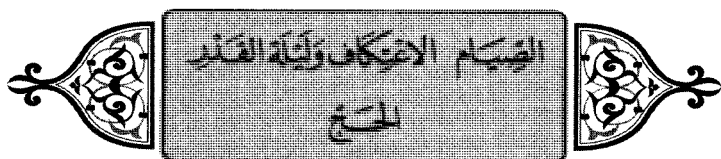 الصِّيَام الاعْتِكَاف وَلَيْلَة القَدْرِ
الحَجّ